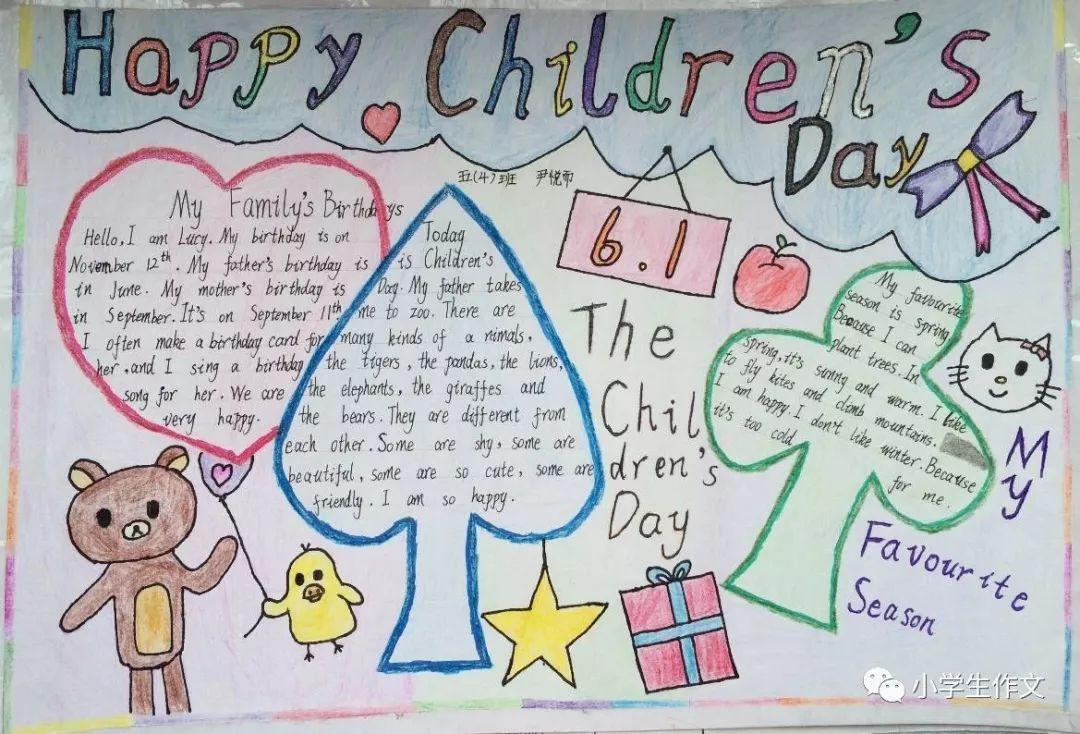 Happy Children's
Day
五(4)班 尹悦
My Family's Birthdays
Hello, I am Lucy. My birthday is on
November 12th. My father's birthday is
in June. My mother's birthday is
in September. It's on September 11th.
I often make a birthday card for
her, and I sing a birthday
song for her. We are
very happy.
Today
is Children's
Day. My father takes
me to zoo. There are
many kinds of animals,
the tigers, the pandas, the lions,
the elephants, the giraffes and
the bears. They are different from
each other. Some are shy, some are
beautiful, some are so cute, some are
friendly. I am so happy.
6.1
The
Chil
dren's
Day
My favourite
season is spring.
Because I can
plant trees. In
spring, it's sunny and warm. I like
to fly kites and climb mountains.
I am happy. I don't like winter. Because
it's too cold for me.
My
Favourite
Season
小学生作文